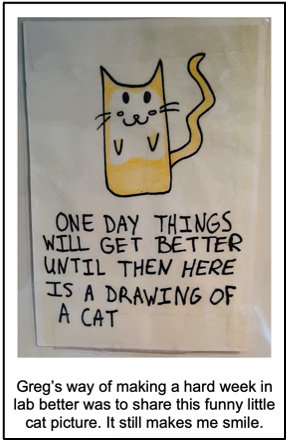 ONE DAY THINGS
WILL GET BETTER
UNTIL THEN HERE
IS A DRAWING OF
A CAT
Greg's way of making a hard week in
lab better was to share this funny little
cat picture. It still makes me smile.